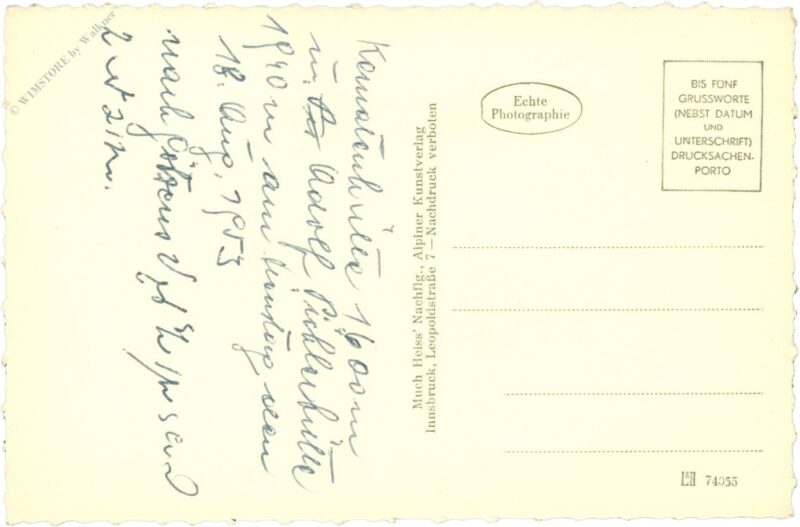 Kematenhütte 1600 m
u. Adolf Pichlerhütte
1940 m am
18. Aug. 1953
nach Götzens
2 St 21 m.
Much Heiss' Nachflg., Alpiner Kunstverlag
Innsbruck, Leopoldstraße 7 — Nachdruck verboten
Echte
Photographie
BIS FÜNF
GRUSSWORTE
(NEBST DATUM
UND
UNTERSCHRIFT)
DRUCKSACHEN-
PORTO
74055
© WIMSTORE by Walkner